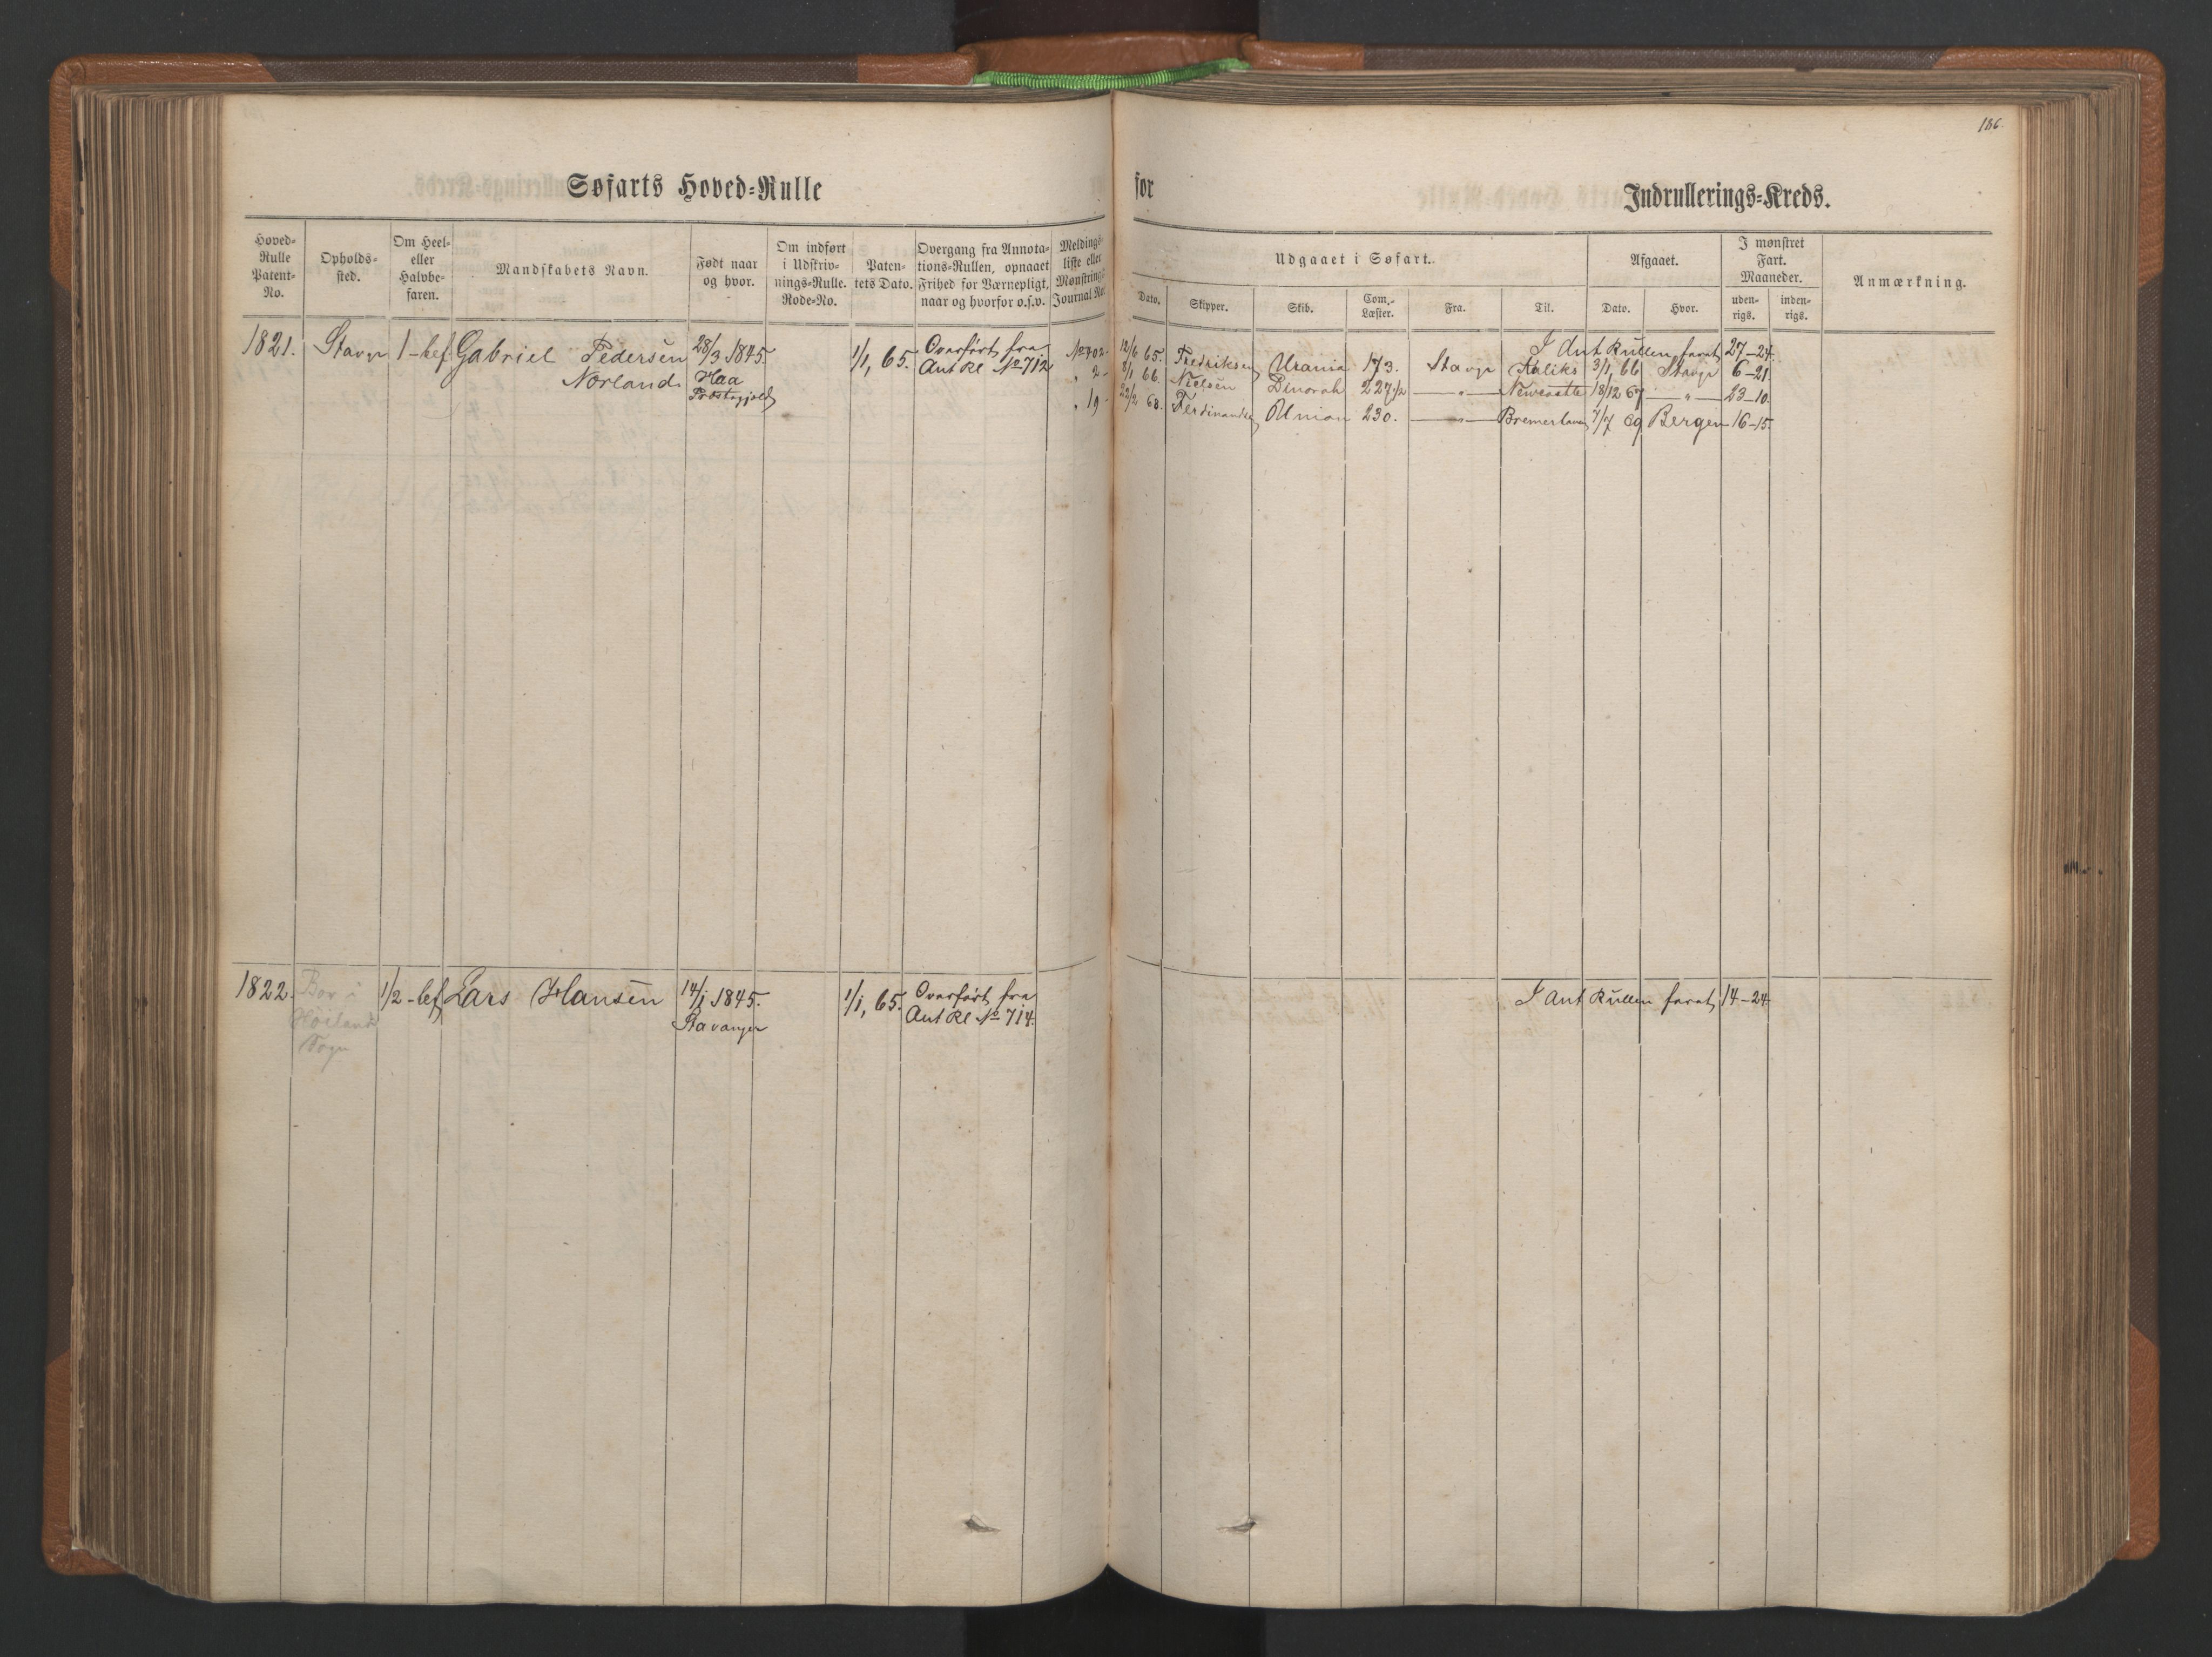 186.
Søfarts Hoved=Rulle for Indrullerings=Kreds.
Hoved=
Rulle
Patent=
No.
Opholds=
sted.
Om Heel=
eller
Halvbe=
faren.
Mandskabets Navn.
Født naar
og hvor.
Om indført
i Udskriv=
nings=Rulle.
Rode=No.
Paten=
tets Dato.
Overgang fra Annota=
tions=Rullen, opnaaet
Frihed for Værnepligt,
naar og hvorfor o.s.v.
Meldings=
liste eller
Mønstrings=
Journal No.
Udgaaet i Søfart.
Dato.
Skipper.
Skib.
Com.=
Læster.
Fra.
Til.
Afgaaet.
Dato.
Hvor.
I mønstret
Fart.
Maaneder.
uden=
rigs.
inden=
rigs.
Anmærkning.
1821. Stavgr 1-bef. Gabriel Pedersen 28/3 1845. 1/1, 65. Overført fra I Ant Rullen faret 27-24.
Norland. Haa Ant Rl No 712
Præstegjeld
No 402. 12/6 65. Fredriksen Urania 173. Stavgr Kaliks 3/1, 66 Stavgr 6-21.
" 2- 8/1 66. Nielsen Dinorah 227 1/2 —"— Newcastle 18/12 67 —"— 23-10.
" 19- 22/2 68. Ferdinandsen Union 230. —"— Bremerhaven 7/7 69 Bergen 16-15.
1822. Bor i 1/2-bef. Lars Hansen 14/1 1845. 1/1, 65. Overført fra I Ant Rullen faret 14-24.
Høiland Stavanger Ant Rl No 714.
Sogn